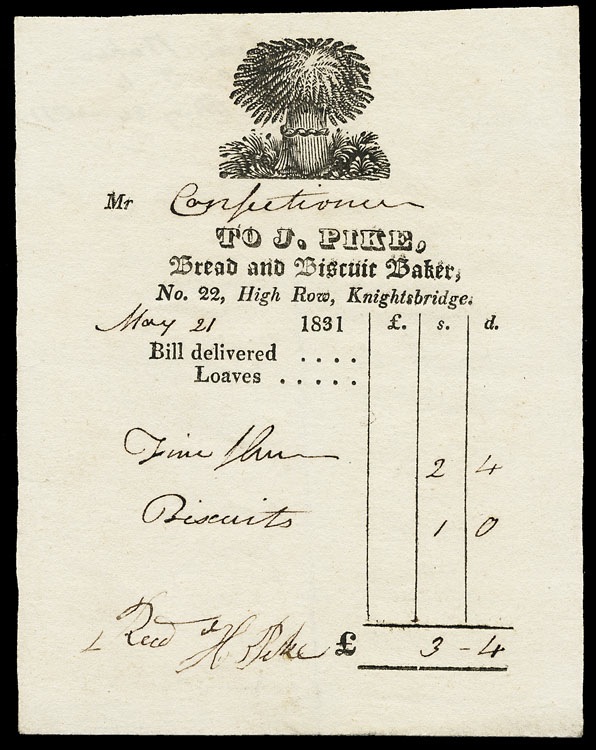 Mr Confectioner
TO J. PIKE,
Bread and Biscuit Baker,
No. 22, High Row, Knightsbridge.
May 21 1831 £. s. d.
Bill delivered ....
Loaves .....
Fine 2 4
Biscuits 1 0
Recd H Pike £ 3 - 4